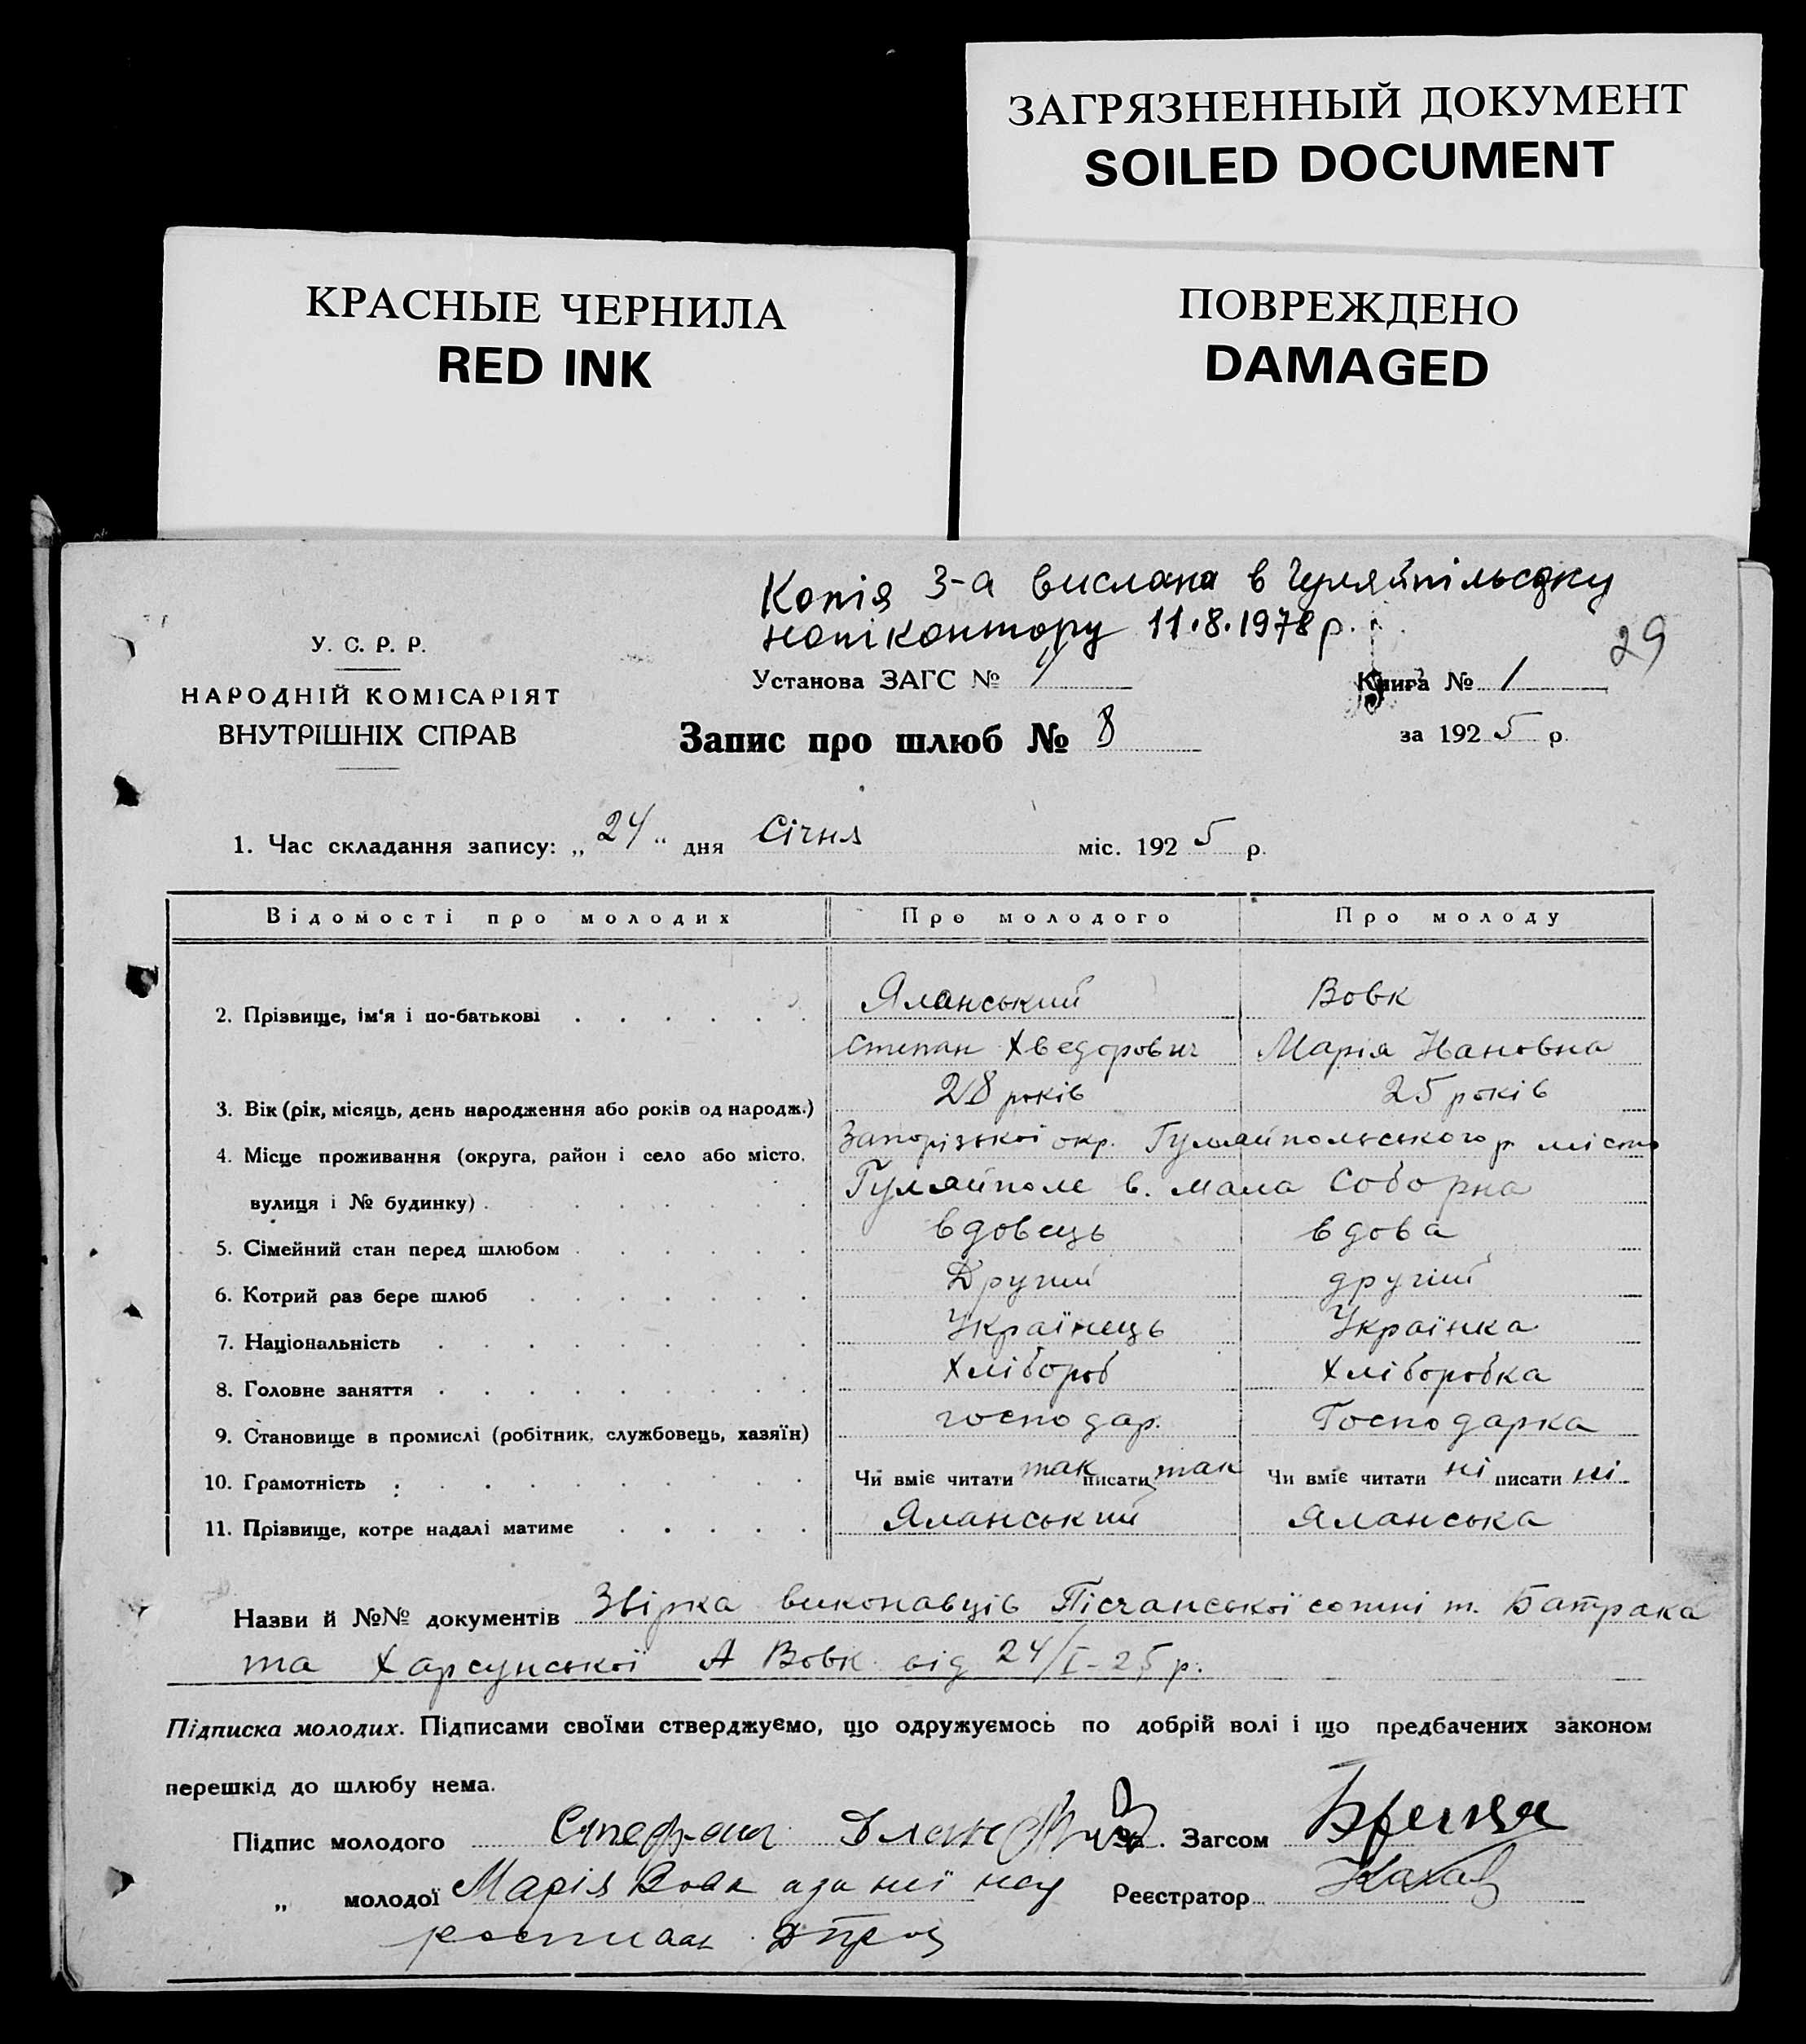 ЗАГРЯЗНЕННЫЙ ДОКУМЕНТ
SOILED DOCUMENT
КРАСНЫЕ ЧЕРНИЛА
RED INK
ПОВРЕЖДЕНО
DAMAGED
Копія 3-а вислана в Гуляйпільську
нотіконтору 11.8.1978 р.
29
У. С. Р. Р.
НАРОДНІЙ КОМІСАРІЯТ
ВНУТРІШНІХ СПРАВ
Установа ЗАГС №
Книга № 1
Запис про шлюб № 8
за 1925 р.
1. Час складання запису: „24“ дня Січня міс. 1925 р.
Відомості про молодих Про молодого Про молоду
2. Прізвище, ім'я і по-батькові Яланський Вовк
Степан Хведорович Марія Йвановна
3. Вік (рік, місяць, день народження або років од народж.) 28 років 25 років
4. Місце проживання (округа, район і село або місто, Запорізької окр. Гуляйпольського р. місто
вулиця і № будинку) Гуляйполе в. мала Соборна
5. Сімейний стан перед шлюбом вдовець вдова
6. Котрий раз бере шлюб Другий другий
7. Національність Українець Українка
8. Головне заняття Хлібороб Хлібородка
9. Становище в промислі (робітник, службовець, хазяїн) господар. Господарка
10. Грамотність Чи вміє читати так писати так Чи вміє читати ні писати ні
11. Прізвище, котре надалі матиме Яланський Яланська
Назви й №№ документів Звірка виконавців Пісчанської сотні т. Батрака
та Харсунської А Вовк від 24/I-25 р.
Підписка молодих. Підписами своїми стверджуємо, що одружуємось по добрій волі і що предбачених законом
перешкід до шлюбу нема.
Підпис молодого Загсом
„ молодої Марія Вовк а за неї Реєстратор